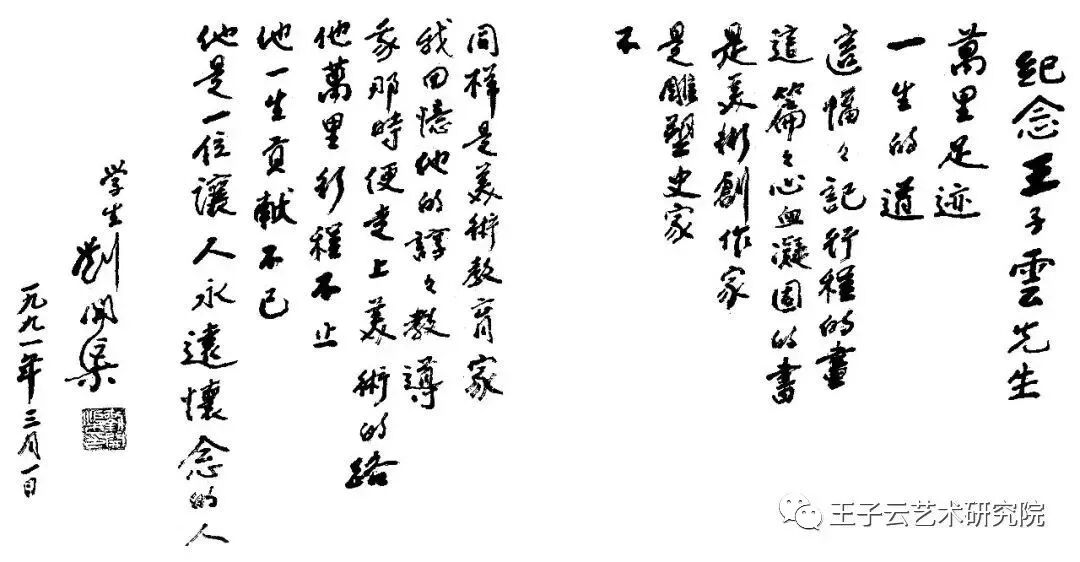 紀念王子雲先生
萬里足迹
一生的道
這幅々記行程的畫
這篇々心血凝固的書
是美術創作家
是雕塑史家
不
同样是美術教育家
我回憶他的諄々教導
我那時便走上美術的路
他萬里行程不止
他一生貢献不已
他是一位讓人永遠懷念的人
学生劉開渠
一九九一年三月一日
王子云艺术研究院